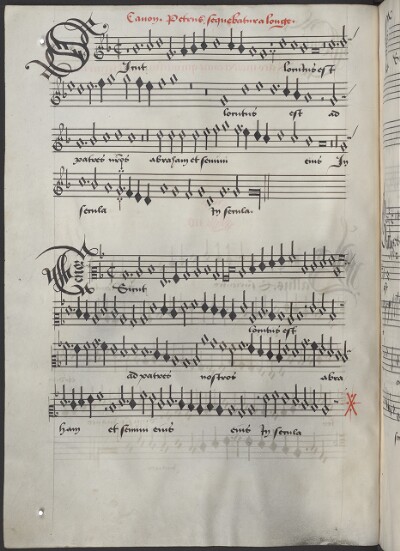 Canon. Petrus sequebatur a longe.
Sicut locutus est
locutus est ad
patres nr̄os abraham et semini eius In
secula In secula.
Tenor
Sicut
locutus est
ad patres nostros abra
ham et semini eius eius In secula